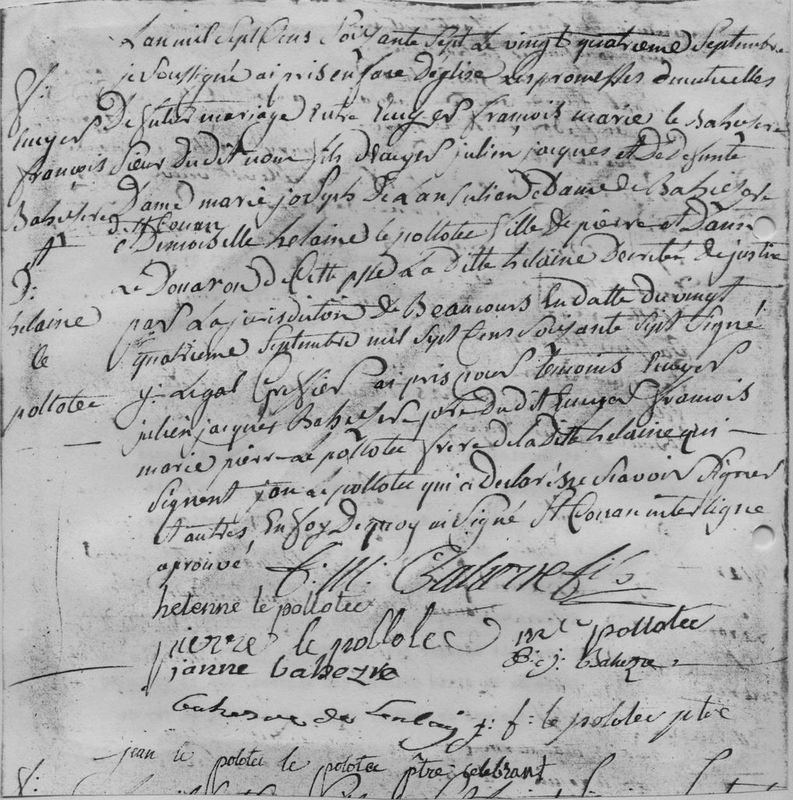 L'an mil sept Cens soixante sept Le vingt quatrieme septembre
je soussigné ai pris en face d'église Les promesses mutuelles
De futur mariage Entre Ecuyer françois marie le Bahezre
sieur Du dit nom fils d'ecuyer julien jacques et De defunte
Dame marie joseph De Lansulien Dame De Bahezre
de St Conan
et Dmoiselle helaine le pollotec fille De pierre et D'anne
Le Douaron De Cette psse La ditte helaine Decretée De justice
par La jurisdiction de Beaucours En datte du vingt
quatrieme septembre mil sept Cens soixante sept signé
y. Legal Greffier ai pris pour temoins Ecuyer
julien jacques Bahezre pere Du dit Ecuyer françois
marie pierre le pollotec frere de la ditte helaine qui
signent jan le pollotec qui a declaré ne sçavoir signer
et autres En foy De quoy ai signé St Conan interligne
aprouvé
f: m: Bahezre fils
helenne le pollotec
pierre le pollotec
pollotec
janne bahezre
j: Bahezre
bahezre de
y: f: le polotec ptre
jean le polotec le polotec ptre celebrant
f:
Ecuyer
françois
Bahezre
et
D:
helaine
le
pollotec
f: